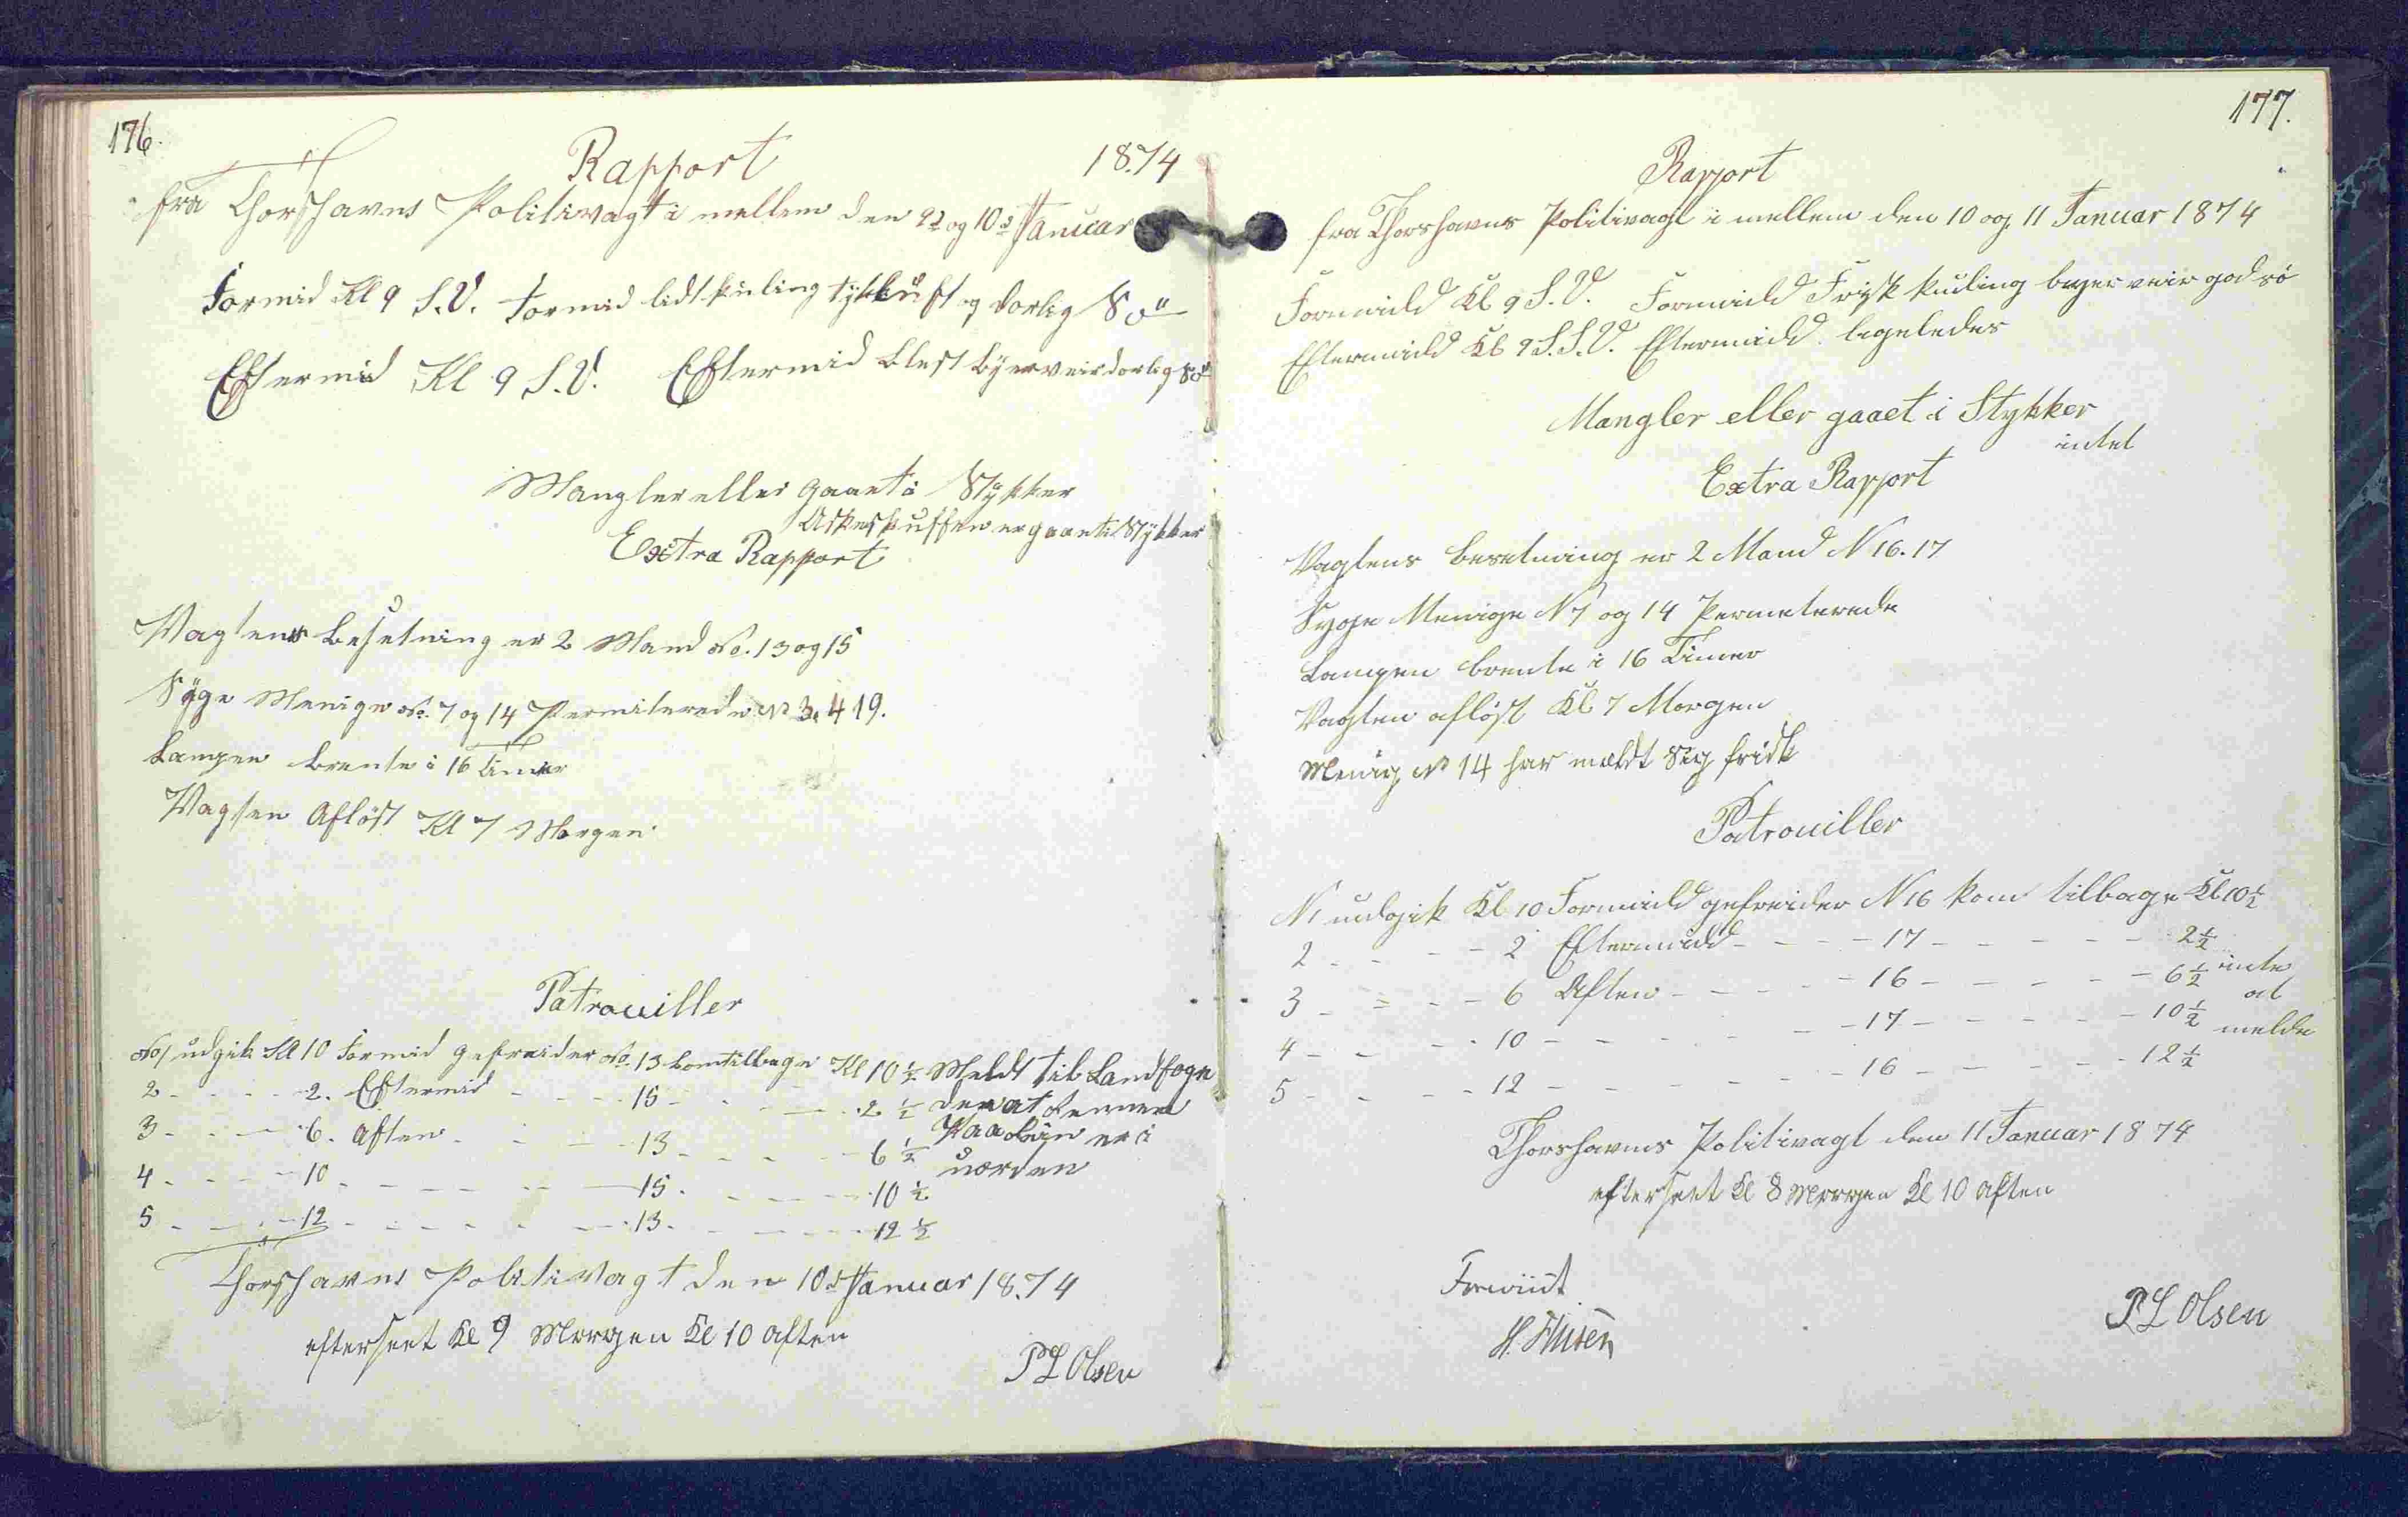 176.
Rapport 1874
fra Thorshavns Politivagt i mellem den 9d og 10d Januar
Formid Kl 9 S.V. Formid lidt kuling tykluft og dorlig Söe
Eftermid Kl 9 S.V. Eftermid blest byerveir dorlig Söe
Mangler eller gaaet i Stykker
Askeskuffen er gaaet i Stykker
Extra Rapport
Vagtens besetning er 2 Mand No. 13 og 15
Syge Menige No. 7 og 14 Permiterede No 3. 4 19.
Lampen brente i 16 Timer
Vagten Aflöst Kl 7 Morgen
Patrouiller
No 1 udgik Kl 10 Formid gefreider No. 13 kom tilbage Kl 10 ½ Meldt til Landfoge
2 - - - - 2. Eftermid - - - 15 - - - - 2 ½ den at Rennen
3 - - - 6. Aften - - - 13 - - - - 6 ½ er i
4 - - - 10 - - - - 15 - - - - 10 ½ uorden
5 - - - 12 - - - - 13 - - - - 12 ½
Thorshavns Politivagt den 10d Januar 1874
efterseet Kl 9 Morgen Kl 10 Aften
P L Olsen
177.
Rapport
fra Thorshavns Politivagt i mellem den 10 og 11 Januar 1874
Formidd Kl 9 S.V. Formidd Frisk kuling byer veir god sö
Eftermidd Kl 9 S.S.V. Eftermidd. ligeledes
Mangler eller gaaet i Stykker
intet
Extra Rapport
Vagtens besetning er 2 Mand N 16. 17
Syge Menige N 7 og 14 Permeterede
Lampen brente i 16 Timer
Vagten aflöst Kl 7 Morgen
Menig No 14 har meldt sig frisk
Patrouiller
N 1 udgik Kl 10 Formidd gefreider N 16 kom tilbage Kl 10 ½
2 - - - - 2 Eftermidd - - - - 17 - - - - - 2 ½
3 - - - - 6 Aften - - - - 16 - - - - - 6 ½ inte
4 - - - - 10 - - - - 17 - - - - - 10 ½ at
5 - - - - 12 - - - - 16 - - - - - 12 ½ melde
Thorshavns Politivagt den 11 Januar 1874
efterseet Kl 8 Morgen Kl 10 Aften
Foreviist
P L Olsen